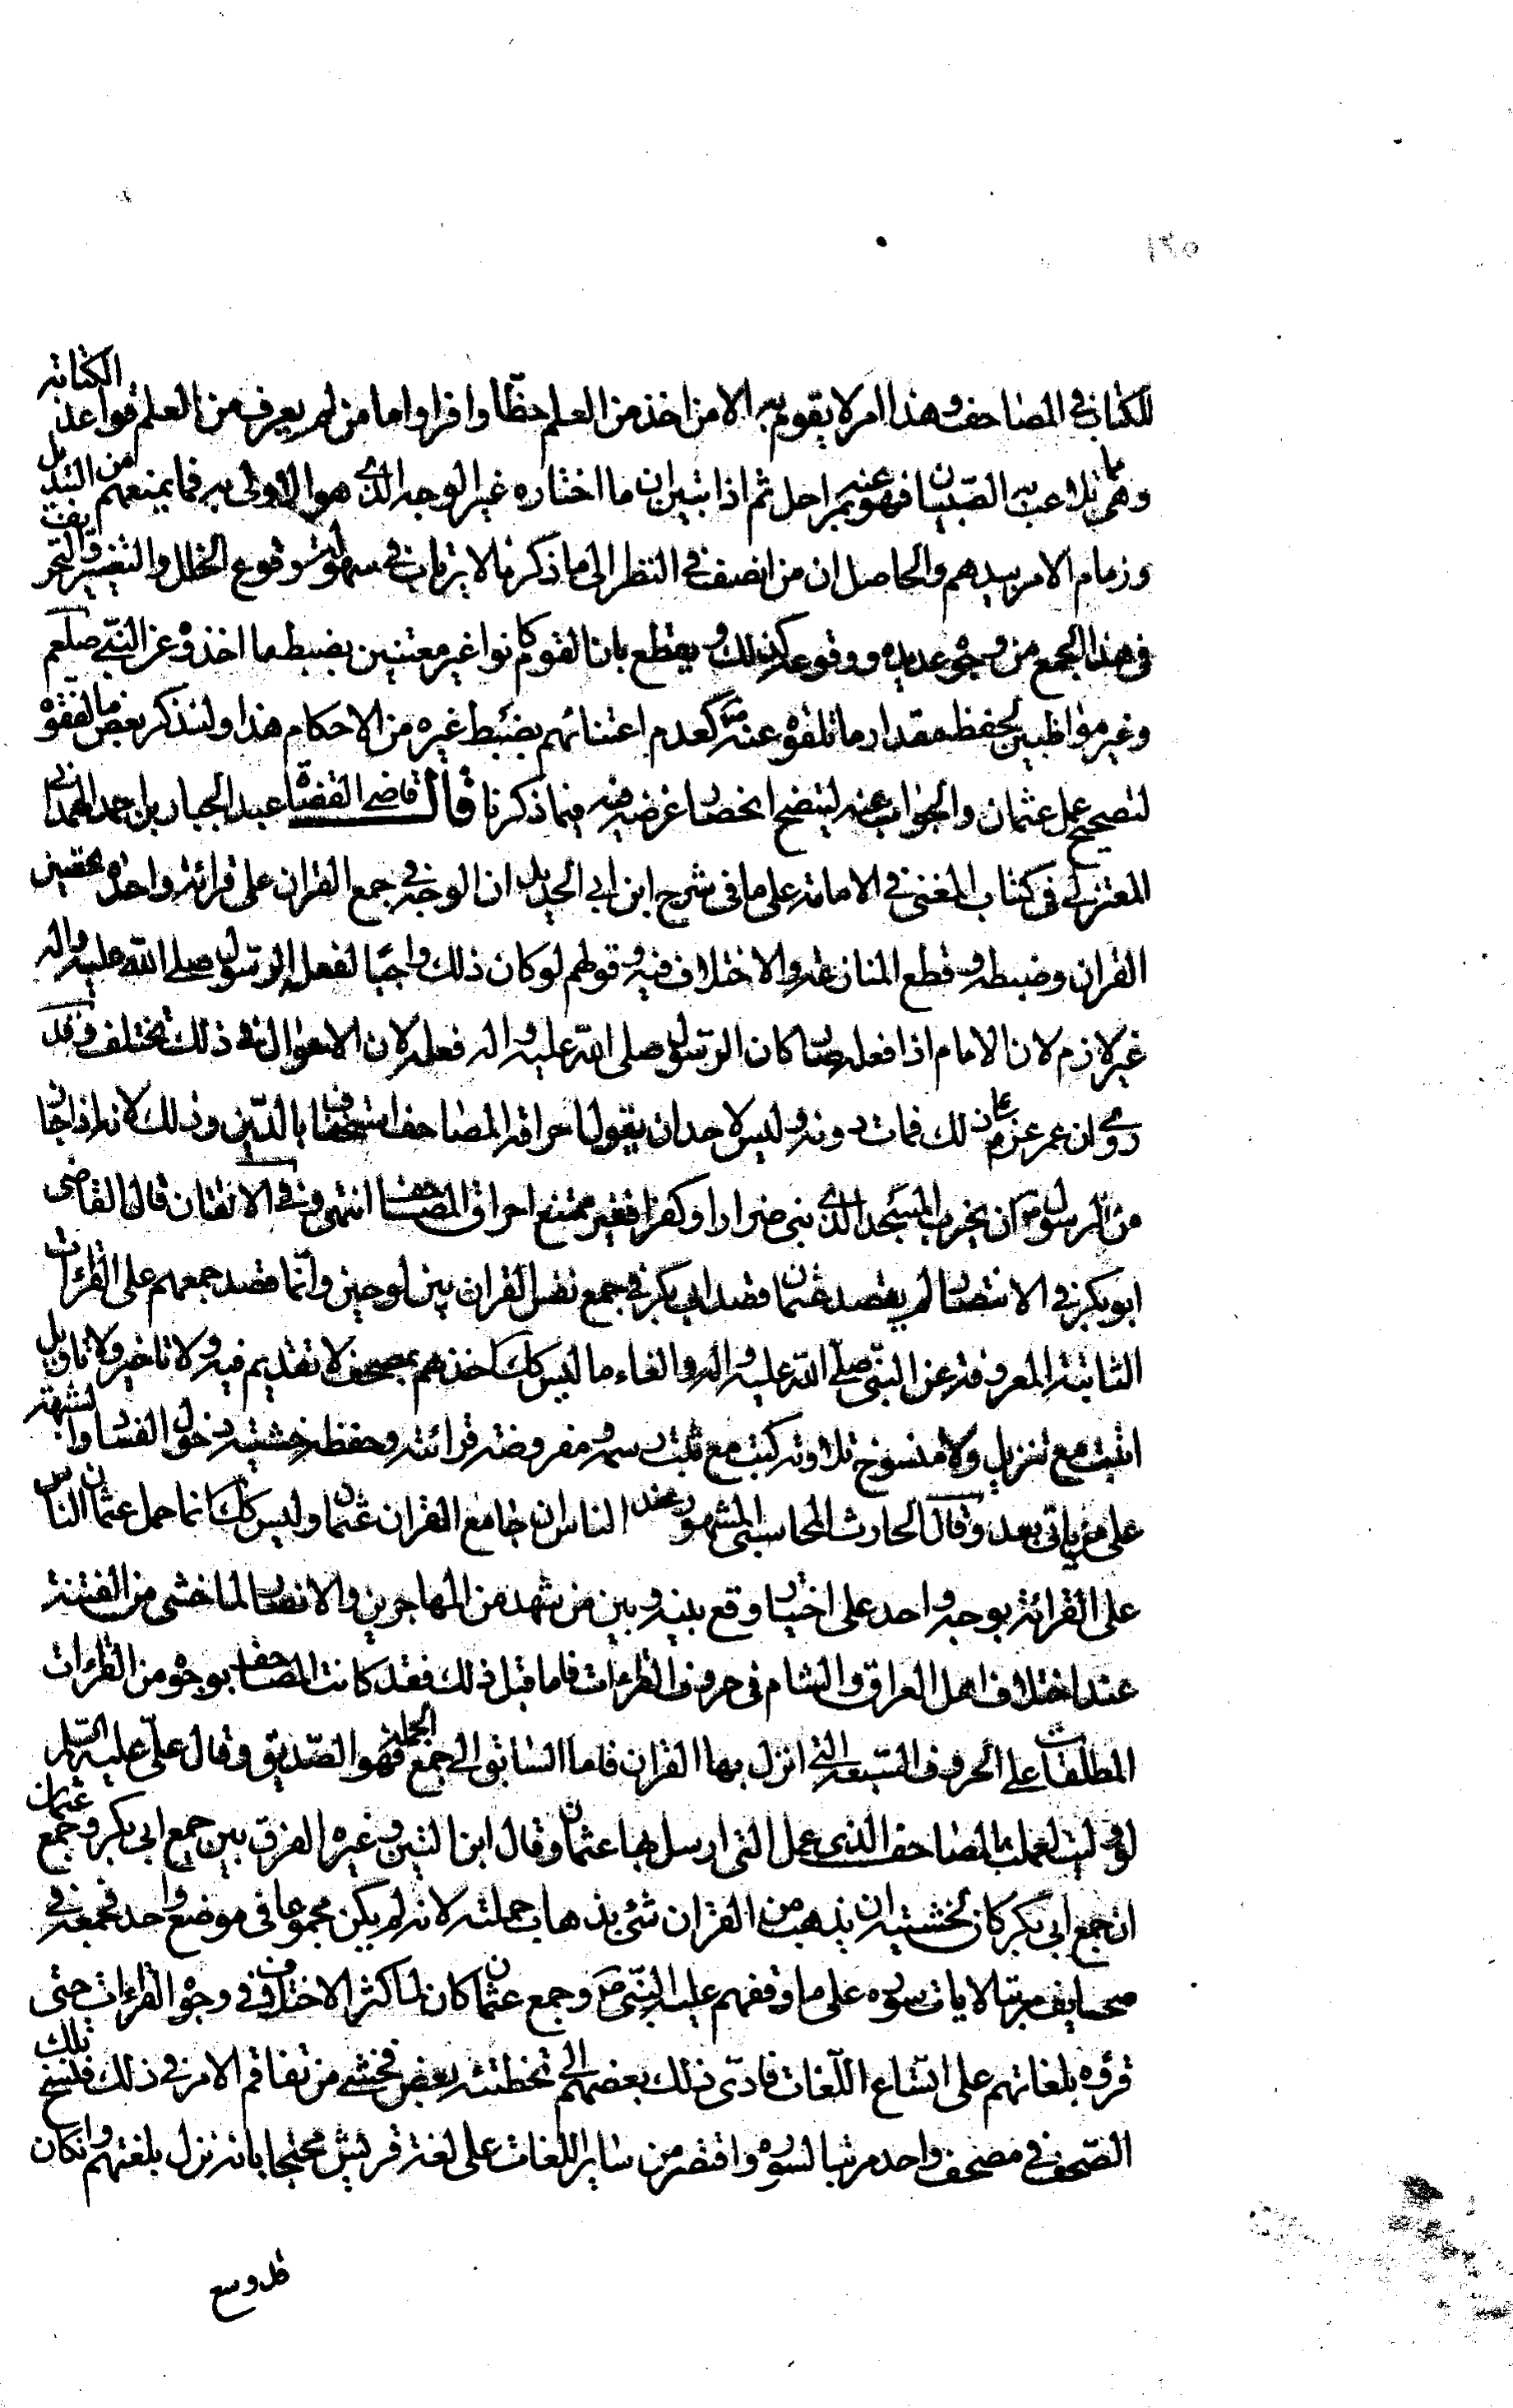 ١٣٥
للكتاب في المصاحف وهذا امر لا يقوم به الا من اخذ من العلم حظّا وافرا واما من لم يعرف من العلم قواعد الكتابة
وهي مما تلاعب به الصّبيان فهو عنه بمراحل ثم اذا تبين ان ما اختاره غير الوجه الذي هو الاولى به فما يمنعهم من التبديل
وزمام الامر بيدهم والحاصل ان من انصف في النظر الى ما ذكرنا لا يرتاب في سهولة وقوع الخلل والتغيير والتحريف
في هذا الجمع من وجوه عديدة ووقوعه كذلك ويقطع بان القوم كانوا غير معتنين بضبط ما اخذوه عن النبي صلعم
وغير مواظبين لحفظ مقدار ما تلقوه عنه ص كعدم اعتنائهم بضبط غيره من الاحكام هذا ولنذكر بعض ما لفقوه
لتصحيح عمل عثمان والجواب عنه ليتضح انحصار غرضه فيما ذكرنا قال قاضي القضاة عبد الجبار بن احمد الهمداني
المعتزلي في كتاب المغني في الامامة على ما في شرح ابن ابي الحديد ان الوجه في جمع القران على قرائة واحدة تحصين
القران وضبطه وقطع المنازعة والاختلاف فيه وقولهم لو كان ذلك واجبا لفعل الرسول صلى الله عليه واله
غير لازم لان الامام اذا فعله صار كان الرسول صلى الله عليه واله فعله لان الاحوال في ذلك تختلف وقد
روي ان عمر عزم على ذلك فمات دونه وليس لاحد ان يقول احراقه المصاحف استخفاف بالدّين وذلك لانه اذا جاز
من الرسول ص ان يخرب المسجد الذي بني ضرارا وكفرا فغير ممتنع احراق المصاحف انتهى وفي الاتقان قال القاضي
ابو بكر في الانتصار لم يقصد عثمان قصد ابي بكر في جمع نفس القران بين لوحين وانّما قصد جمعهم على القرائات
الثابتة المعروفة عن النبي صلى الله عليه واله والغاء ما ليس كك واخذهم بمصحف لا تقديم فيه ولا تاخير ولا تاويل
اثبت مع تنزيل ولا منسوخ تلاوته كتب مع مثبت رسمه ومفروضة قرائته وحفظه خشية دخول الفساد والشبهة
على من ياتي بعد وقال الحارث المحاسبي المشهور عند الناس ان جامع القران عثمان وليس كك انما حمل عثمان الناس
على القرائة بوجه واحد على اختيار وقع بينه وبين من شهد من المهاجرين والانصار لما خشى من الفتنة
عند اختلاف اهل العراق والشام في حروف القراءات فاما قبل ذلك فقد كانت المصاحف بوجوه من القراءات
المطلقات على الحروف السبعة التي انزل بها القران فاما السابق الى جمع الجملة فهو الصّديق وقال عليّ عليه السلم
لو وليت لعملت بالمصاحف الذي عمل التي ارسل بها عثمان وقال ابن التين وغيره الفرق بين جمع ابي بكر وجمع عثمان
ان جمع ابي بكر كان لخشية ان يذهب من القران شئ بذهاب حملته لانه لم يكن مجموعا في موضع واحد فجمعه في
صحايف مرتبا لايات سوره على ما وقفهم عليه النبي ص وجمع عثمان كان لما كثر الاختلاف في وجوه القراءات حتى
قرؤه بلغاتهم على اتساع اللّغات فادّى ذلك بعضهم الى تخطئة بعض فخشي من تفاقم الامر في ذلك فنسخ تلك
الصّحف في مصحف واحد مرتبا لسوره واقتصر من ساير اللغات على لغة قريش محتجا بانه نزل بلغتهم وان كان
قد وسع